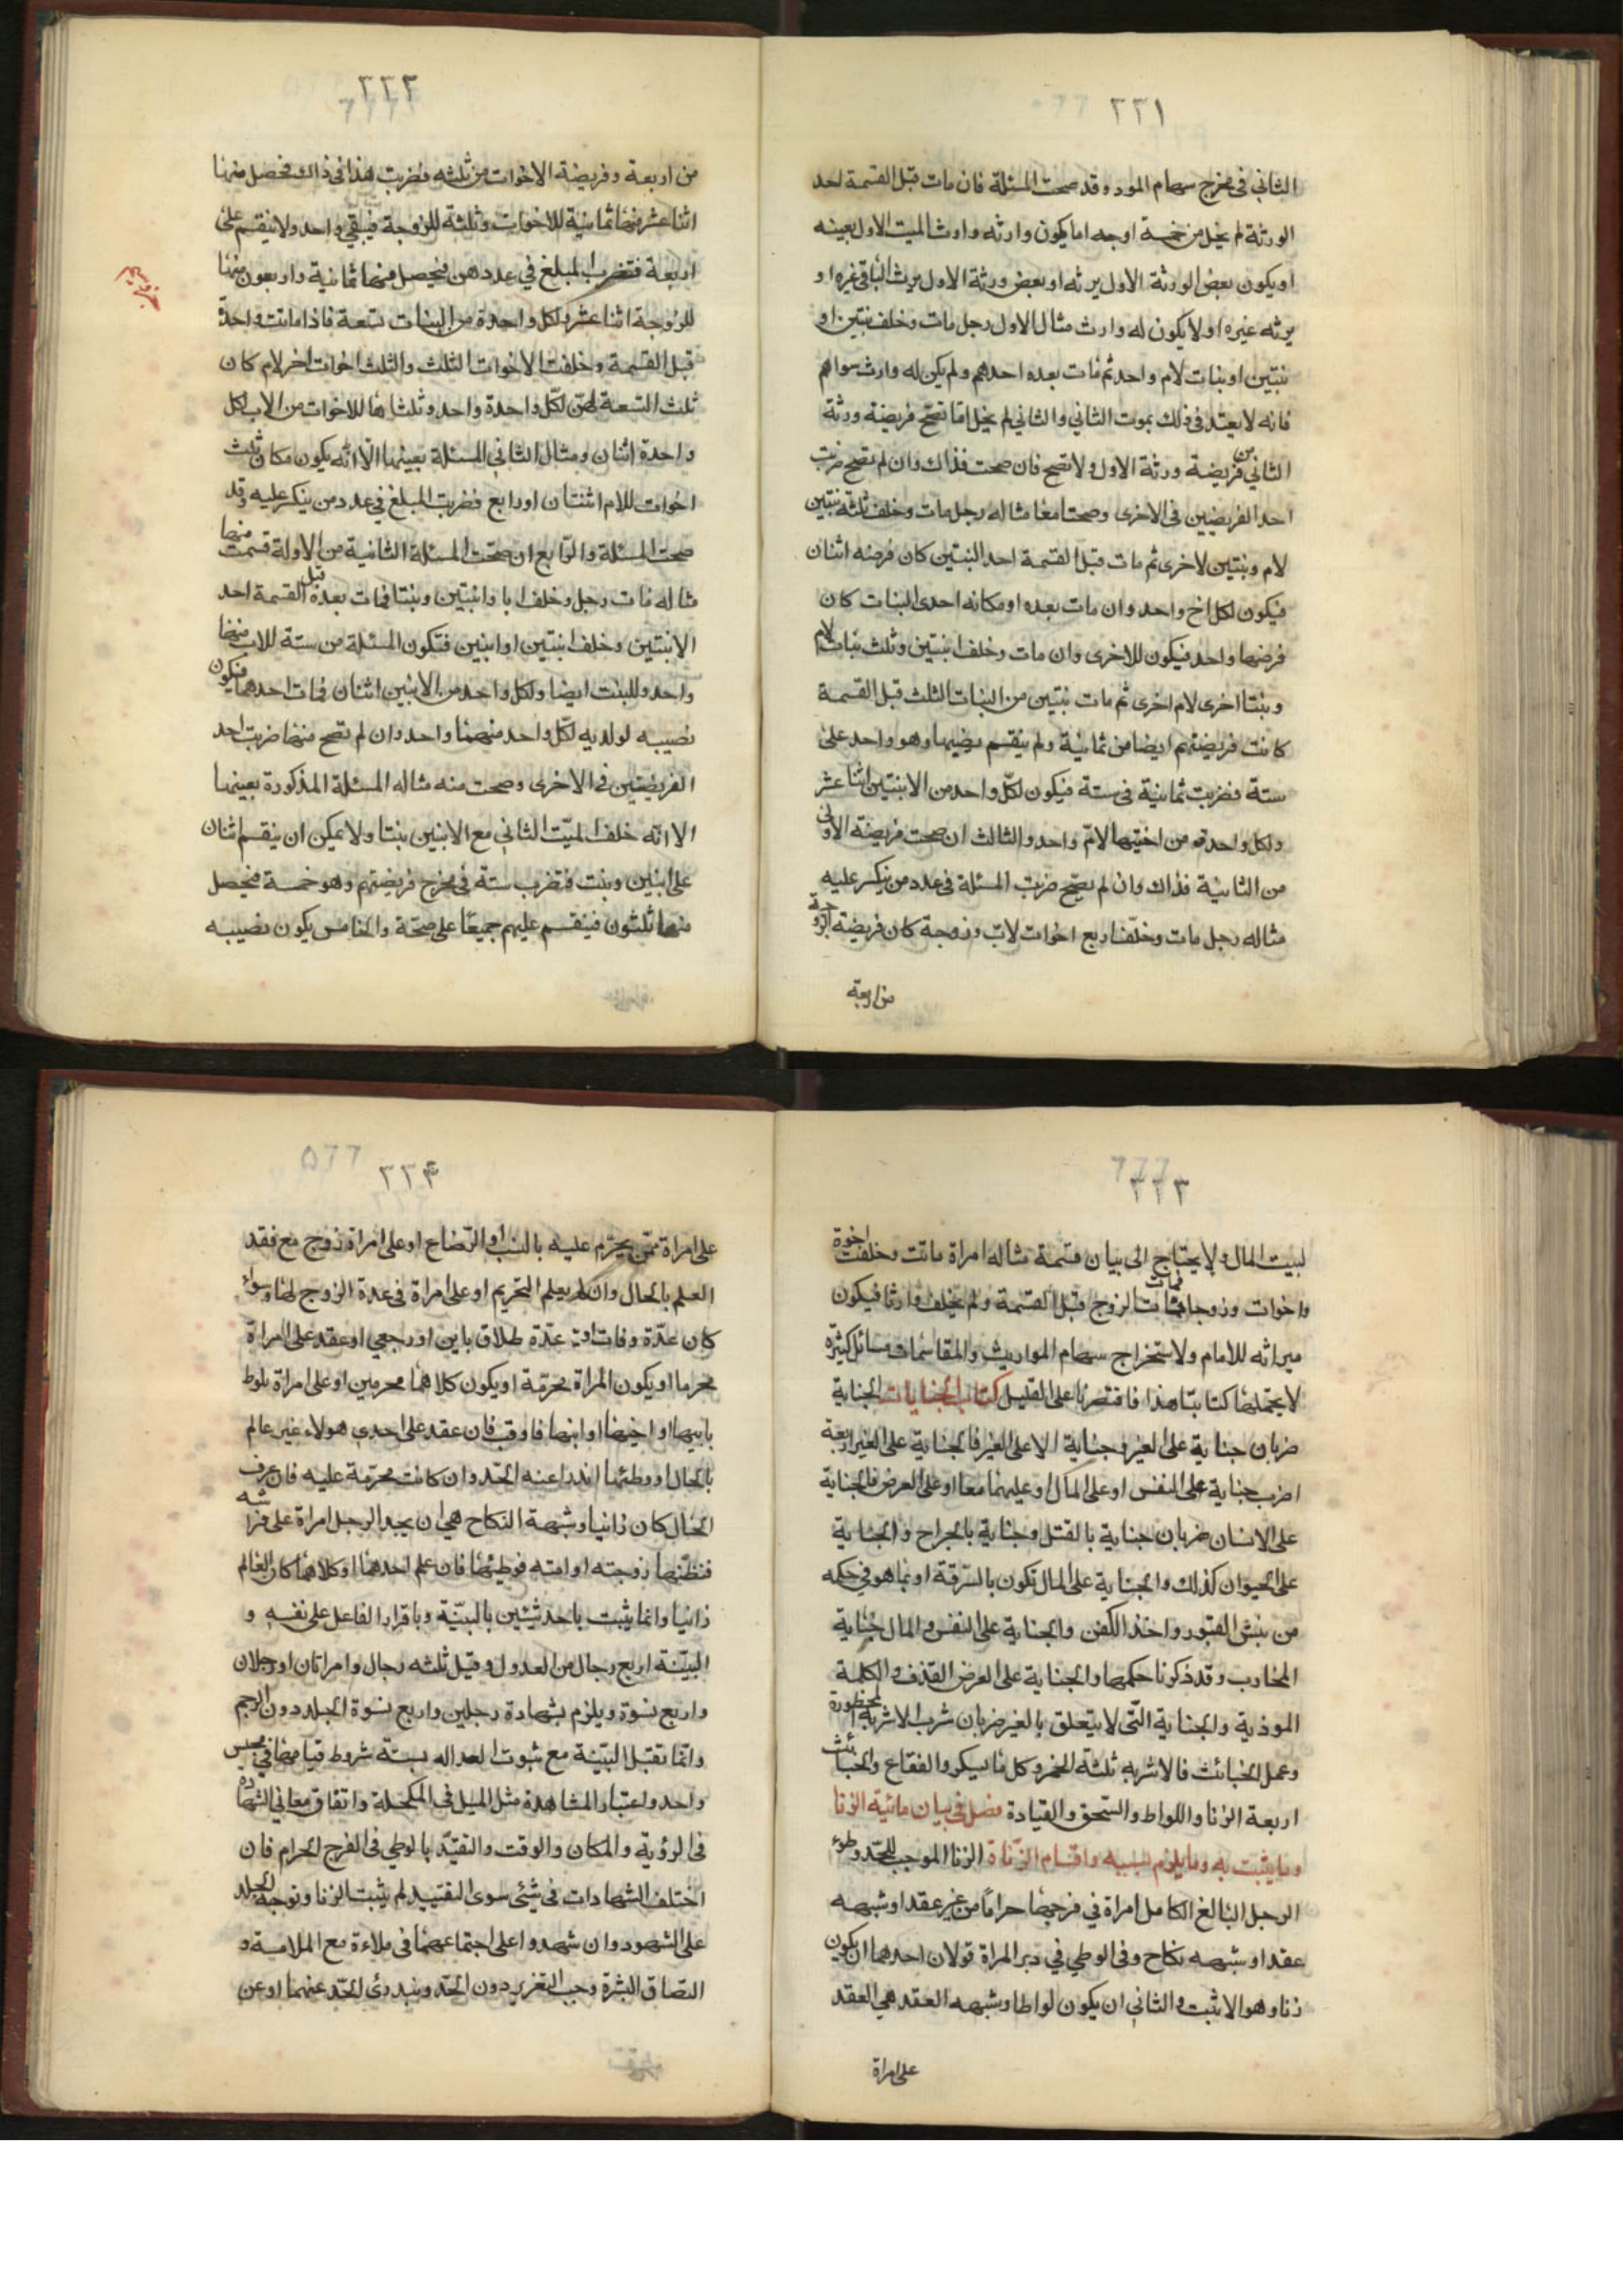 ٢٢١
الثاني في مخرج سهام المورد وقد صحت المسئلة فان مات قبل القسمة احد
الورثة لم يخل من خمسة اوجه اما يكون وارثه وارث الميت الاول بعينه
او يكون بعض الورثة الاول يرثه او بعض ورثة الاول يرث الباقي غيره او
يرثه غيره او لا يكون له وارث مثال الاول رجل مات وخلف بنتين او
بنتين او بنات لام واحد ثم مات بعده احدهم ولم يكن له وارث سواهم
فانه لا يعتد في ذلك بموت الثاني والثاني لم يخل اما تصح فريضة ورثة
الثاني من فريضة ورثة الاول ولا تصح فان صحت فذاك وان لم تصح ضربت
احد الفريضتين في الاخرى وصحتا معا مثاله رجل مات وخلف ثلثة بنتين
لام وبنتين لاخرى ثم مات قبل القسمة احد البنتين كان فرضه اثنان
فيكون لكل اخ واحد وان مات بعده او مكانه احدى البنات كان
فرضها واحد فيكون للاخرى وان مات وخلف ابنتين وثلث بنات لام
وبنتا اخرى لام اخرى ثم مات بنتين من البنات الثلث قبل القسمة
كانت فريضتهم ايضا من ثمانية ولم ينقسم نصيبها وهو واحد على
ستة فضربت ثمانية في ستة فيكون لكل واحد من الابنتين اثنا عشر
ولكل واحدة من اختيها لام واحد والثالث ان صحت فريضة الاولى
من الثانية فذاك وان لم يصح ضربت المسئلة في عدد من ينكسر عليه
مثاله رجل مات وخلف اربع اخوات لاب وزوجة كان فريضة الزوجة
من اربعة
٢٢٢
من اربعة وفريضة الاخوات من ثلثه فضربت هذا في ذاك فحصل منها
اثنا عشر منها ثمانية للاخوات وثلثة للزوجة فيبقى واحد ولا ينقسم على
اربعة فتضرب المبلغ في عددهن فيحصل منها ثمانية واربعون منها
للزوجة اثنا عشر ولكل واحدة من البنات تسعة فاذا ماتت واحدة
قبل القسمة وخلفت الاخوات الثلث والثلث اخوات اخر لام كان
ثلث التسعة لهن لكل واحدة واحد وثلثاها للاخوات من الاب لكل
واحدة اثنان ومثال الثاني المسئلة بعينها الا انه يكون مكان ثلث
اخوات للام اثنتان او رابع فضربت المبلغ في عدد من ينكسر عليه وقد
صحت المسئلة والرابع ان صحت المسئلة الثانية من الاولة قسمت منها
مثاله مات رجل وخلف ابا وابنتين وبنتا فمات بعده قبل القسمة احد
الابنتين وخلف ابنتين او ابنين فتكون المسئلة من ستة للاب منها
واحد وللبنت ايضا ولكل واحد من الابنين اثنان فمات احدهما فيكون
نصيبه لولديه لكل واحد منهما واحد وان لم تصح منها ضربت احد
الفريضتين في الاخرى وصحت منه مثاله المسئلة المذكورة بعينها
الا انه خلف الميت الثاني مع الابنين بنتا ولا يمكن ان ينقسم اثنان
على ابنين وبنت فتضرب ستة في مخرج فريضتهم وهو خمسة فيحصل
منها ثلثون فينقسم عليهم جميعا على صحة والخامس يكون نصيبه
٢٢٣
لبيت المال ولا يحتاج الى بيان قسمة مثاله امراة ماتت وخلفت اخوة
واخوات وزوجا فمات الزوج قبل القسمة ولم يخلف وارثا فيكون
ميراثه للامام ولاستخراج سهام المواريث والمقاسمات مسائل كثيرة
لا يحتملها كتابنا هذا فاقتصرنا على القليل كتاب الجنايات الجناية
ضربان جناية على الغير وجناية لا على الغير فالجناية على الغير اربعة
اضرب جناية على النفس او على المال او عليهما معا او على العرض فالجناية
على الانسان ضربان جناية بالقتل وجناية بالجراح والجناية
على الحيوان كذلك والجناية على المال تكون بالسرقة او بما هو في حكمه
من نبش القبور واخذ الكفن والجناية على النفس والمال جناية
المحارب وقد ذكرنا حكمها والجناية على العرض القذف والكلمة
الموذية والجناية التي لا يتعلق بالغير ضربان شرب الاشربة المحظورة
وعمل الخبائث فالاشربه ثلثة الخمر وكل ما يسكر والفقاع والخبائث
اربعة الزنا واللواط والسحق والقيادة فصل في بيان مائية الزنا
وما يثبت به وما يلزم بسببه واقسام الزناة الزنا الموجب للحد وطوء
الرجل البالغ الكامل امراة في فرجها حراما من غير عقد او شبهه
عقد او شبهه نكاح وفي الوطي في دبر المراة قولان احدهما ان يكون
زنا وهو الاثبت والثاني ان يكون لواطا وشبهه العقد هي العقد
على امراة
٢٢٤
على امراة ممن يحرم عليه بالنسب او الرضاع او على امراة زوج مع فقد
العلم بالحال وان لم يعلم التحريم او على امراة في عدة الزوج لها سواء
كان عدة وفات او عدة طلاق باين او رجعي او عقد على امراة
محرما او يكون المراة محرمة او يكون كلاهما محرمين او على امراة يلوط
بابيها او اخيها او ابنها فاوقب فان عقد على احدى هولاء غير عالم
بالحال او وطئها اندرا عنه الحد وان كانت محرمة عليه فان عرف
الحال كان زانيا وشبهة النكاح هي ان يجد الرجل امراة على فراشه
فنظنها زوجته او امته فوطيها فان علم احدهما او كلاهما كان العالم
زانيا وانما يثبت باحد شيئين بالبينة وباقرار الفاعل على نفسه و
البينة اربع رجال من العدول وقيل ثلثه رجال وامراتان او رجلان
واربع نسوة ويلزم بشهادة رجلين واربع نسوة الجلد دون الرجم
وانما تقبل البينة مع ثبوت العداله بستة شروط قيامها في مجلس
واحد واعتبار المشاهدة مثل الميل في المكحلة واتفاق معاني الشهادة
في الرؤية والمكان والوقت والتقيد بالوطي في الفرج الحرام فان
اختلف الشهادات في شيئ سوى التقييد لم يثبت الزنا وتوجه الجلد
على الشهود وان شهدوا على اجتماعهما في ملاءة مع الملامسة و
التصاق البشرة وجب التعزير دون الحد ويندرئ الحد عنهما او عن